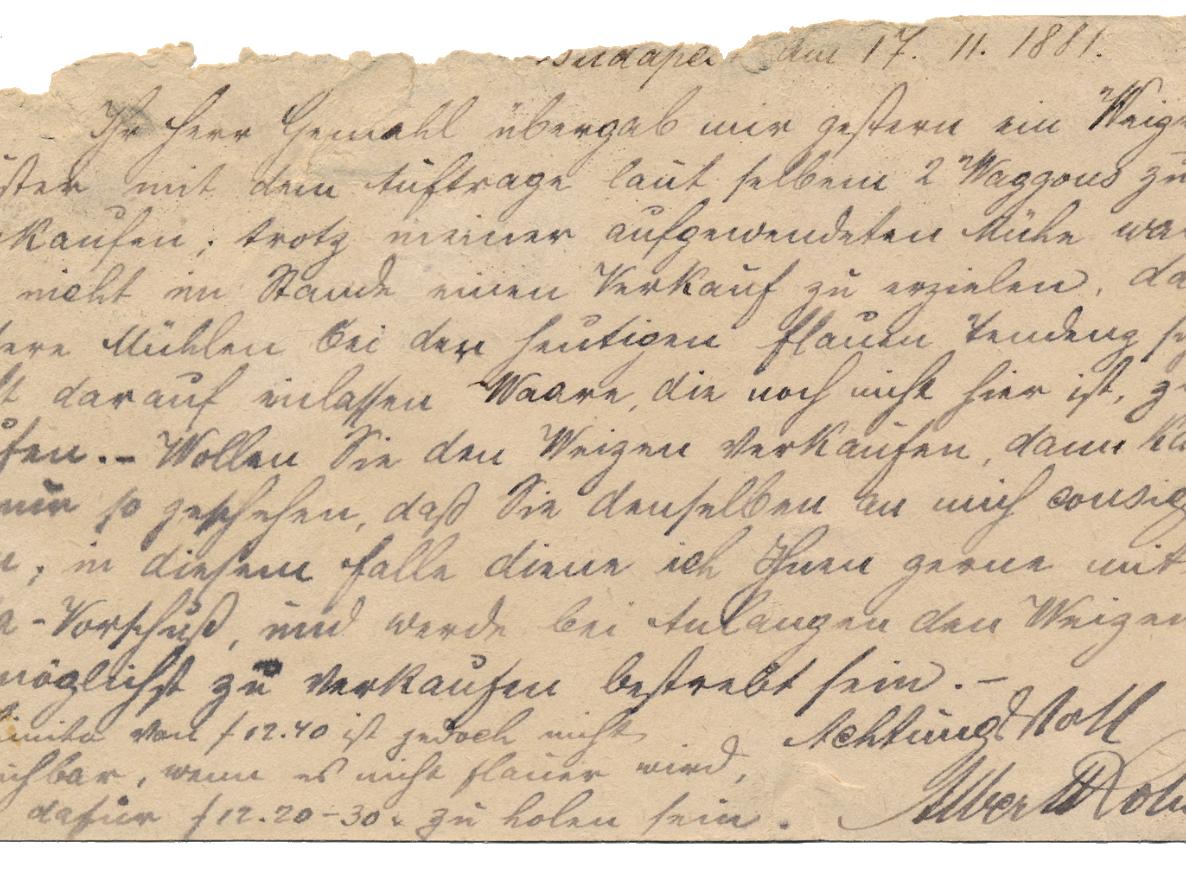 am 17. 11. 1881.
Ihr Herr Gemahl übergab mir gestern ein Weiz
ster mit dem Auftrage laut selbem 2 Waggons zu
kaufen; trotz meiner aufgewendeten Mühe wa
nicht im Stande einen Verkauf zu erzielen, da
ere Mühlen bei der heutigen flauen Tendenz
t darauf einlassen Waare, die noch nicht hier ist, z
fen.- Wollen Sie den Weizen verkaufen, dann ka
nur so geschehen, daß Sie denselben an mich consig
; in diesem Falle diene ich Ihnen gerne mit
a-Vorschuß, und werde bei Anlangen den Weizen
möglichst zu verkaufen bestrebt sein.-
Limito von f 12.40 ist jedoch nicht
Achtungsvoll
chbar, wenn es nicht flauer wird,
dafür f 12.20-30 zu holen sein.
Albert